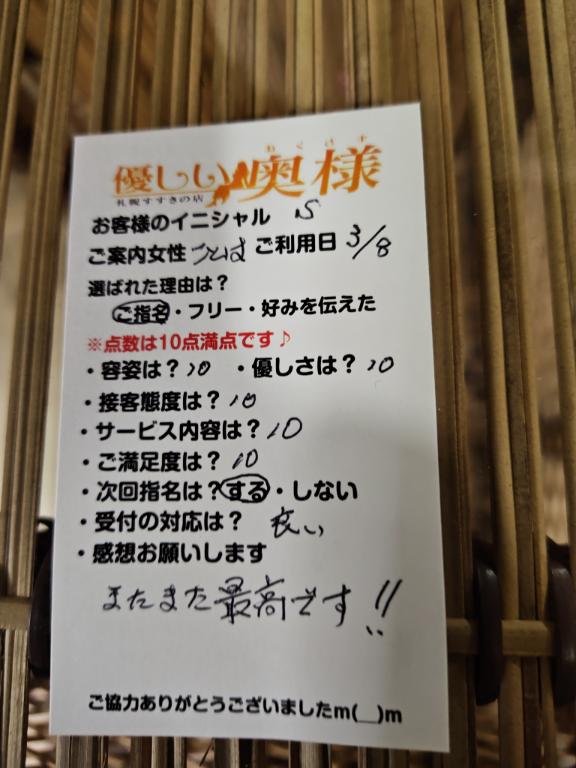 おくさま
優しい奥様
札幌すすきの店
お客様のイニシャル S
ご案内女性 ことは ご利用日 3/8
選ばれた理由は？
ご指名・フリー・好みを伝えた
※点数は10点満点です♪
・容姿は？10 ・優しさは？10
・接客態度は？10
・サービス内容は？10
・ご満足度は？10
・次回指名は？する・しない
・受付の対応は？ 良い
・感想お願いします
またまた最高です!!
ご協力ありがとうございましたm(__)m